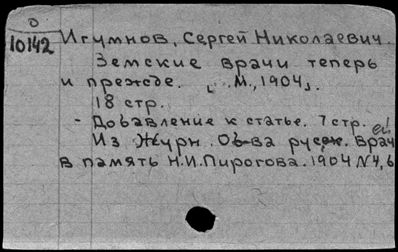 О
10142
Игумнов, Сергей Николаевич.
Земские врачи теперь
и прежде. [М., 1904].
18 стр.
- Добавление к статье. 7 стр.
Из Журн. Об-ва русск. врачей
в память Н.И.Пирогова. 1904 N4,6